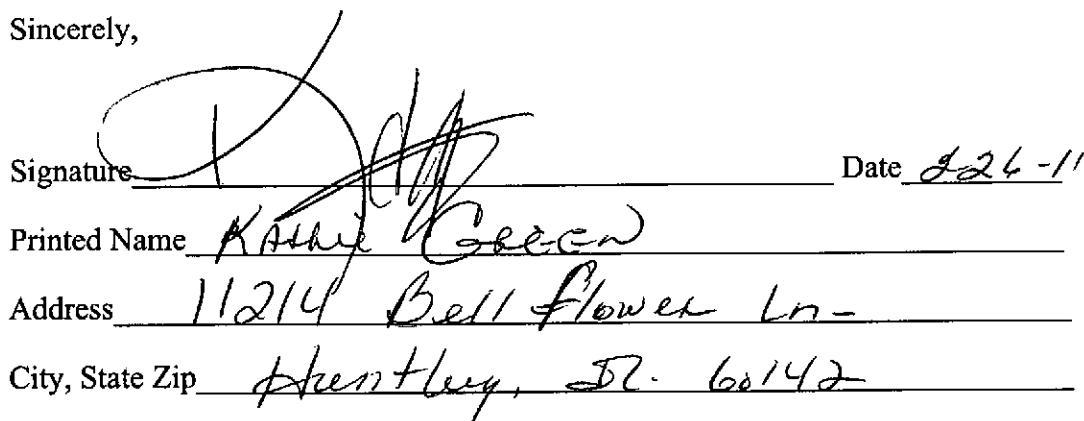 Sincerely,
Signature Date 2-26-11
Printed Name Kathie Green
Address 11214 Bell flower Ln-
City, State Zip Huntley, Il. 60142